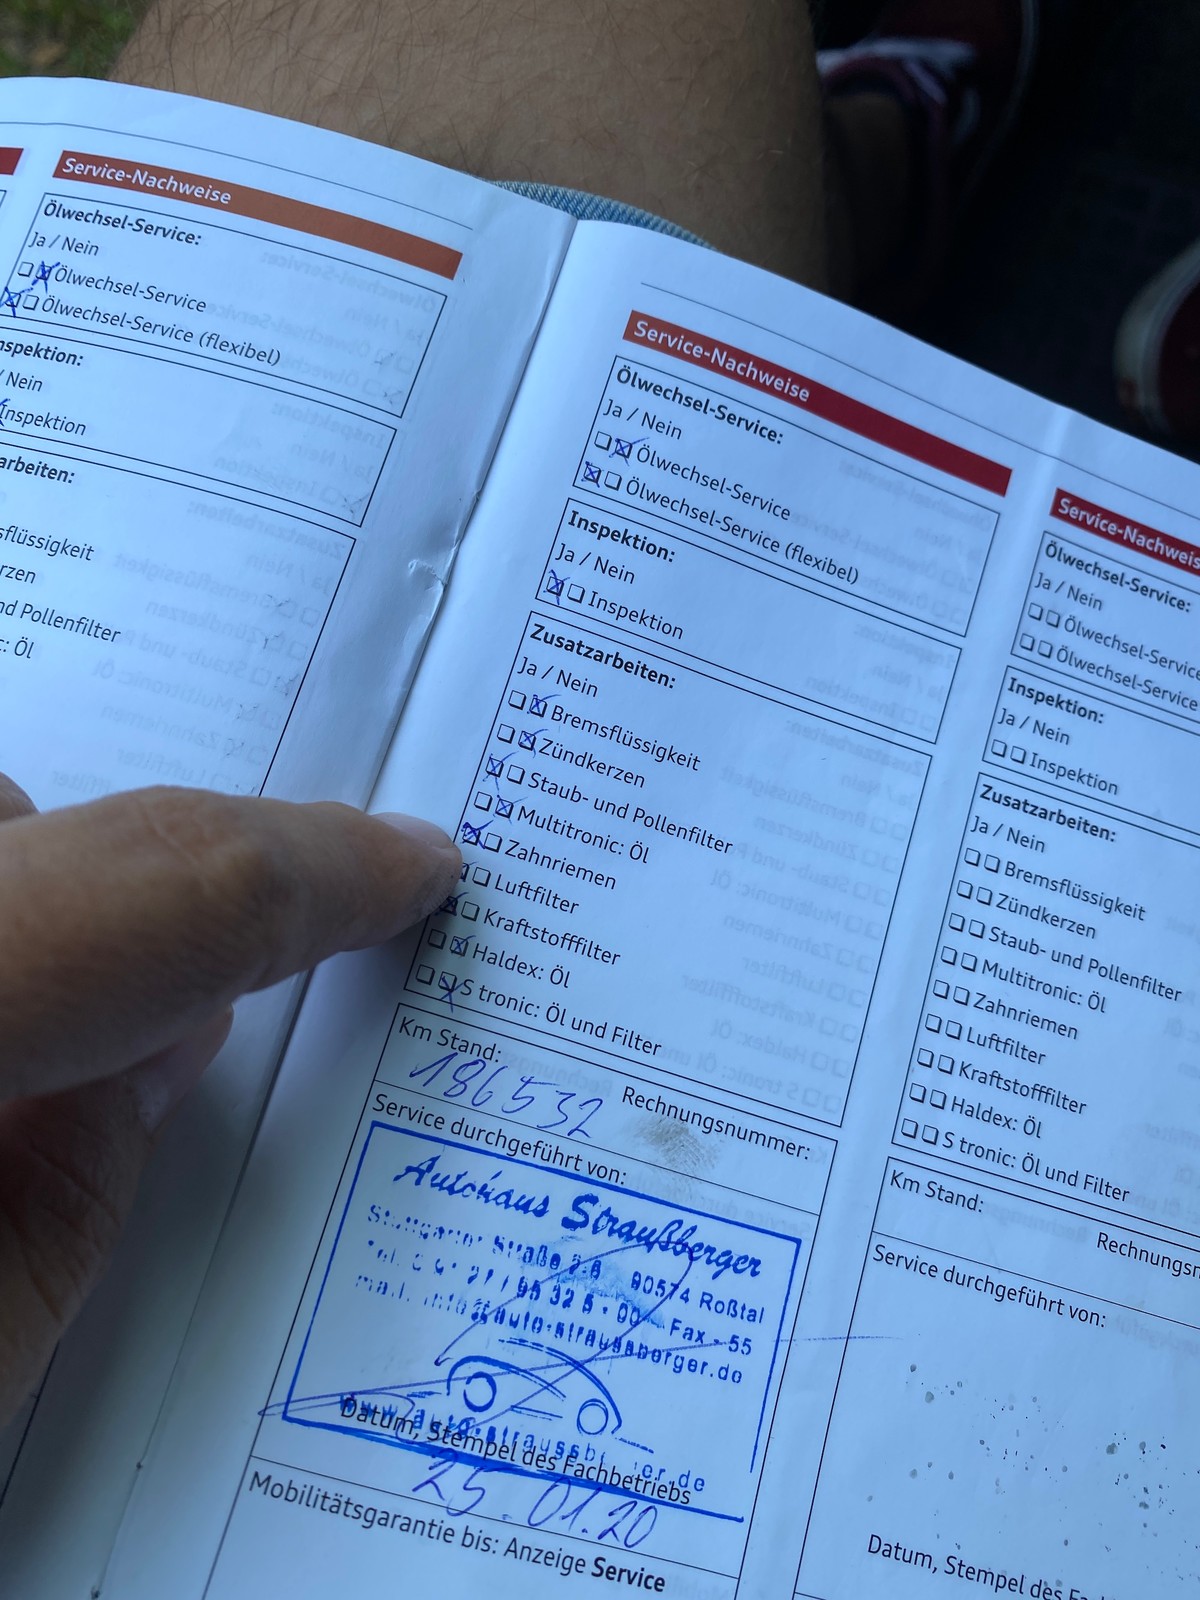 Service-Nachweise
Ölwechsel-Service:
Ja / Nein
Ölwechsel-Service
Ölwechsel-Service (flexibel)
nspektion:
/ Nein
Inspektion
arbeiten:
sflüssigkeit
rzen
nd Pollenfilter
c: Öl
Service-Nachweise
Ölwechsel-Service:
Ja / Nein
Ölwechsel-Service
Ölwechsel-Service (flexibel)
Inspektion:
Ja / Nein
Inspektion
Zusatzarbeiten:
Ja / Nein
Bremsflüssigkeit
Zündkerzen
Staub- und Pollenfilter
Multitronic: Öl
Zahnriemen
Luftfilter
Kraftstofffilter
Haldex: Öl
S tronic: Öl und Filter
Km Stand:
186532
Rechnungsnummer:
Service durchgeführt von:
Autohaus Straußberger
Straße 90574 Roßtal
Fax - 55
info@auto-straussberger.de
Datum, Stempel des Fachbetriebs
25.01.20
Mobilitätsgarantie bis: Anzeige Service
Service-Nachweise
Ölwechsel-Service:
Ja / Nein
Ölwechsel-Service
Ölwechsel-Service
Inspektion:
Ja / Nein
Inspektion
Zusatzarbeiten:
Ja / Nein
Bremsflüssigkeit
Zündkerzen
Staub- und Pollenfilter
Multitronic: Öl
Zahnriemen
Luftfilter
Kraftstofffilter
Haldex: Öl
S tronic: Öl und Filter
Km Stand:
Rechnungsn
Service durchgeführt von:
Datum, Stempel des Fach